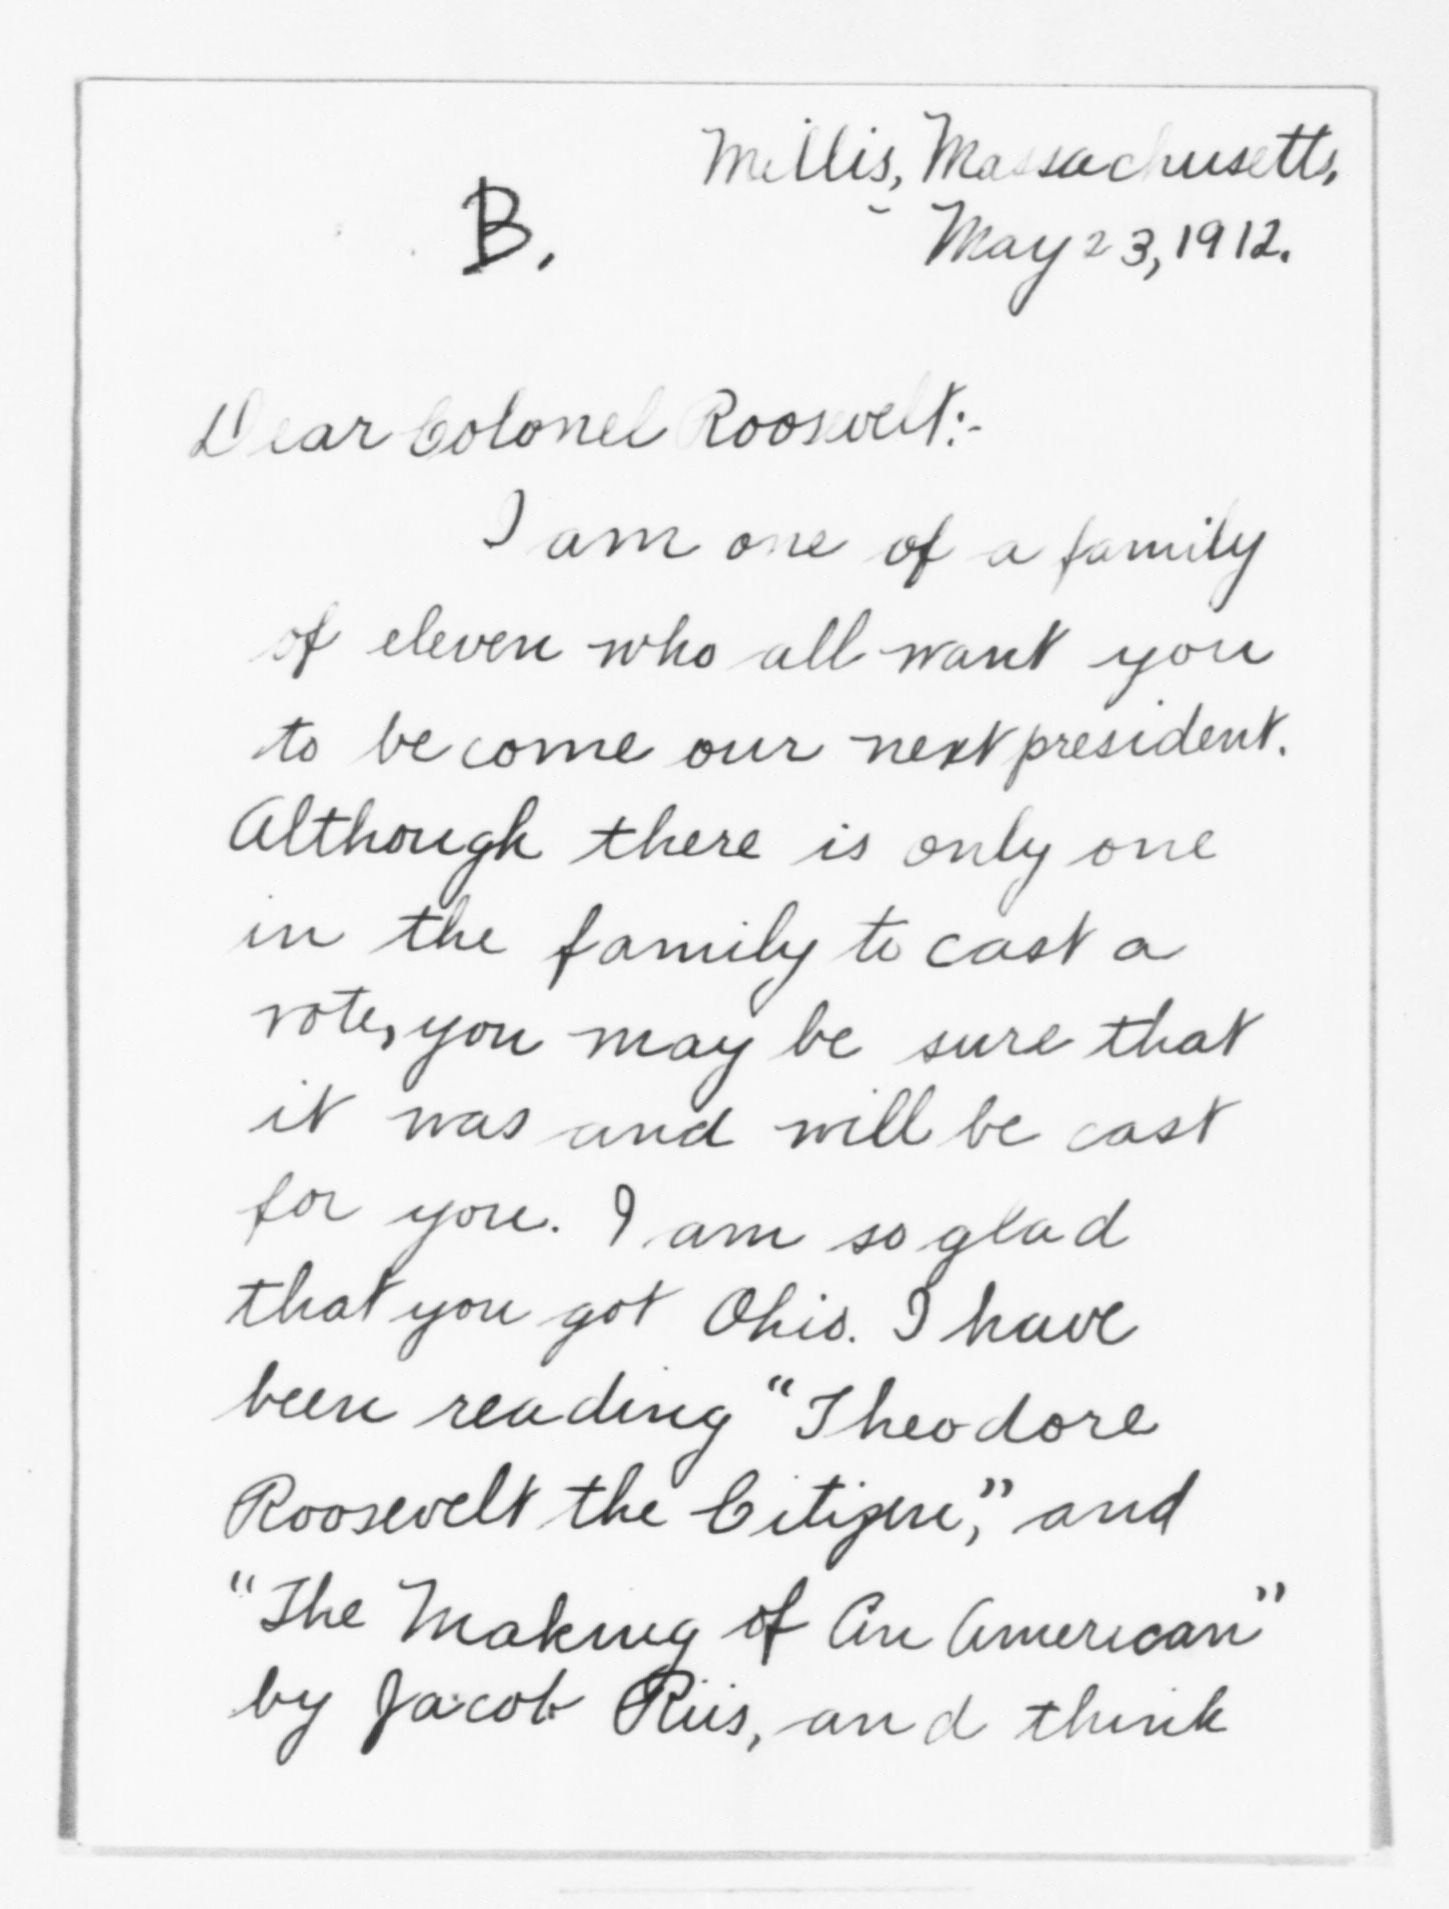 Millis, Massachusetts,
B.
May 23, 1912.
Dear Colonel Roosevelt:-
I am one of a family
of eleven who all want you
to become our next president.
Although there is only one
in the family to cast a
vote, you may be sure that
it was and will be cast
for you. I am so glad
that you got Ohio. I have
been reading "Theodore
Roosevelt the Citizen," and
"The Making of An American"
by Jacob Riis, and think